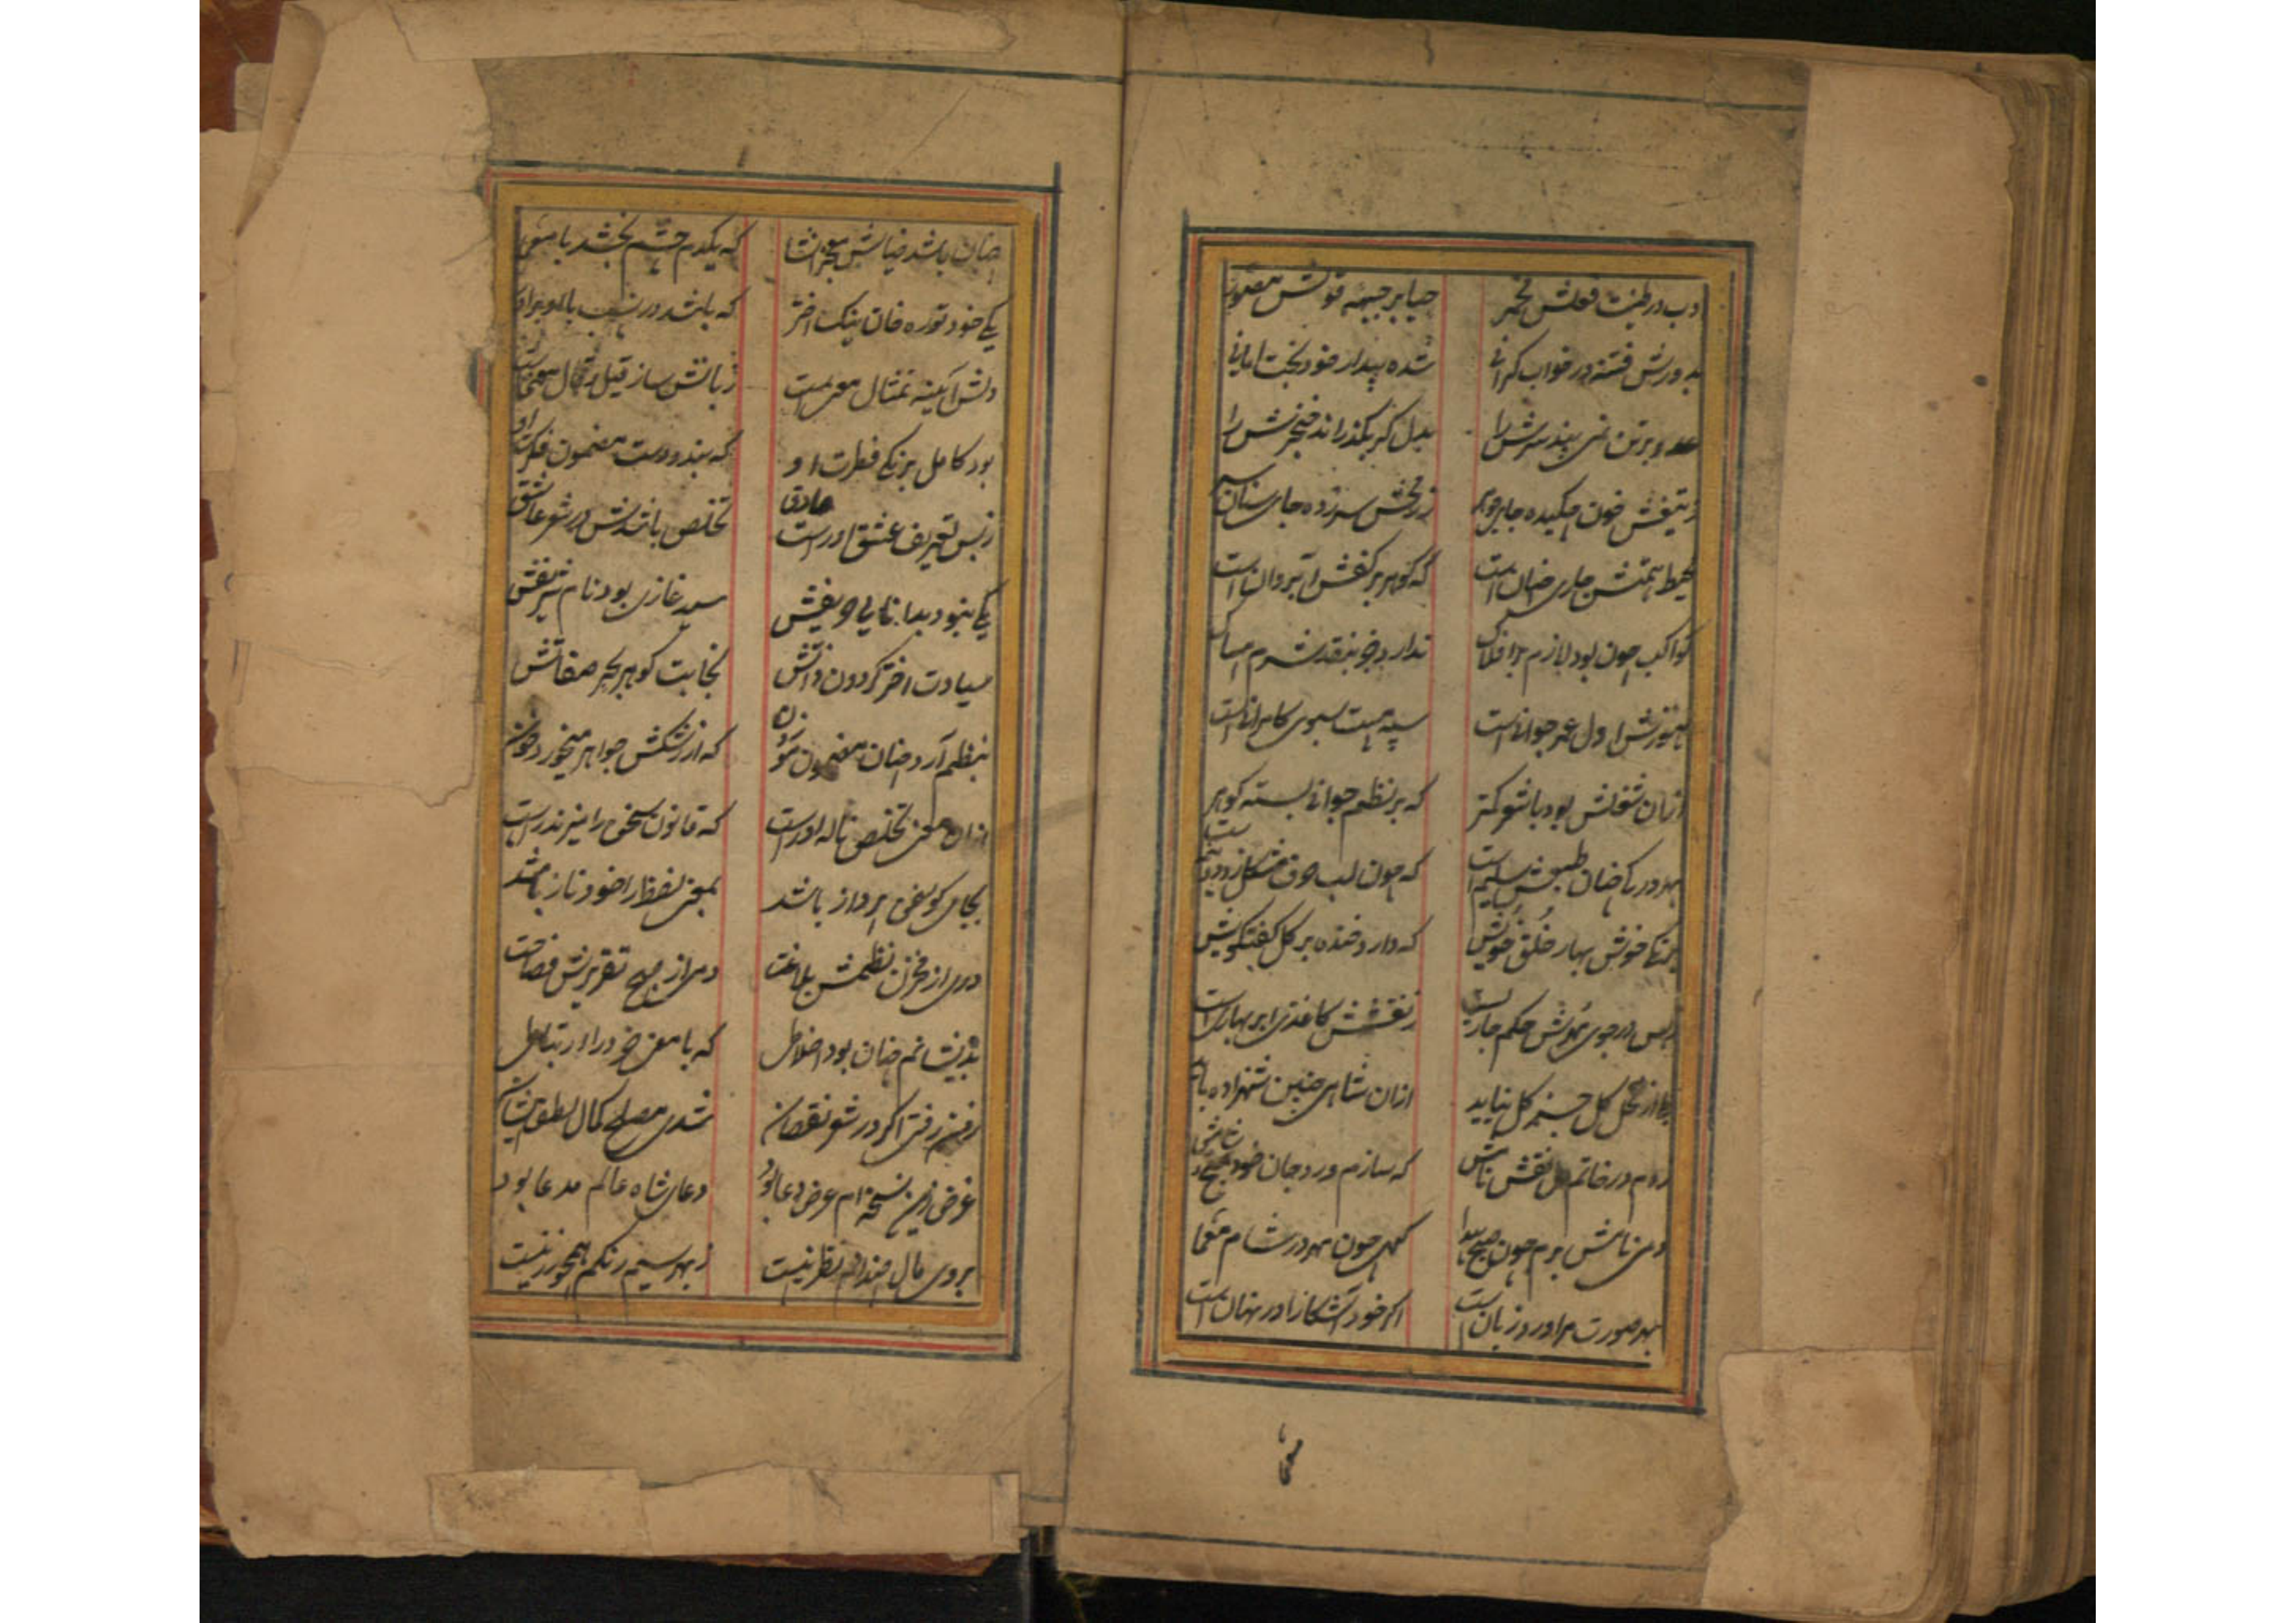 ادب در طینت فعلش مخمر حیا بر جبهه قولش مصور
بدورش فتنه در خواب کرانی شده بیدار خود بخت امانی
عدو بر تن نمی بیند سرش را بدل کر بکذراند خنجرش را
ز تیغش خون چکیده جای جوهر ز رمحش سر زده جای سنان سر
محیط همتش جاری چنان است که کوهر بر کفش آب روان است
کواکب چون بود لازم بر افلاک ندارد جز بنقد شرم امساک
هنوزش اول عمر جوانیست سیه مست سبوی کامرانیست
ازان شغلش بود با شعر کمتر که بر نظم جوانی بسته کوهر
بهر درکی چنان طبعش سلیم است که چون لب حرف مشکل زو دو نیم است
خوش بهار خلق خویش که دارد خنده بر کل کفتکویش
ز بس در جوی خونش حکم جاریست ز نقشش کاغذی ابر بهاریست
بلی از نخل کل جز کل نیاید ازان شاهی چنین شهزاده باید
زدم در خاتم دل نقش نامش که سازم ورد جان خود
دمی نامش برم چون صبح پیدا کهی چون مهر در شام معما
بهر صورت مرا ورد زبان است اکر خود آشکارا در نهان است
چنان باشد ضیایش معجز انشا که یکدم چشم بخشد با معمی
یکی خود توره خان نیک اختر که باشد در نسب با او برادر
دلش آیینه تمثال معنیست زبانش ساز قیل و قال معنیست
بود کامل بزنکی فطرت او که بندد دست مضمون فکرت او
ز بس تعریف عشق او راست صادق تخلص باشدش در شعر عاشق
یکی نبود بدانایی حریفش سید غازی بود نام شریفش
سیادت اختر کردون ذاتش نجابت کوهر بحر صفاتش
بنظم آرد چنان مضمون موزون که از رشکش جواهر میخورد خون
ازان معنی تخلص ناله او راست که قانون سخن را میزند راست
بجای کو سخن پرداز باشد بمعنی لفظ را خود ناز باشد
دری از مخزن نظمش بلاغت دمی از صبح تقریرش فصاحت
بدینشانم چنان بود اختلاطی که با معنی خرد را ارتباطی
ز فهم رفتی اکر در شعر نقصان شدی مصلح کمال لطف ایشان
غرض زین نسخه ام عرض دعا بود دعای شاه عالم مدعا بود
بروی مال چندانم نظر نیست ز بهر سیم رنکم همچو زر نیست